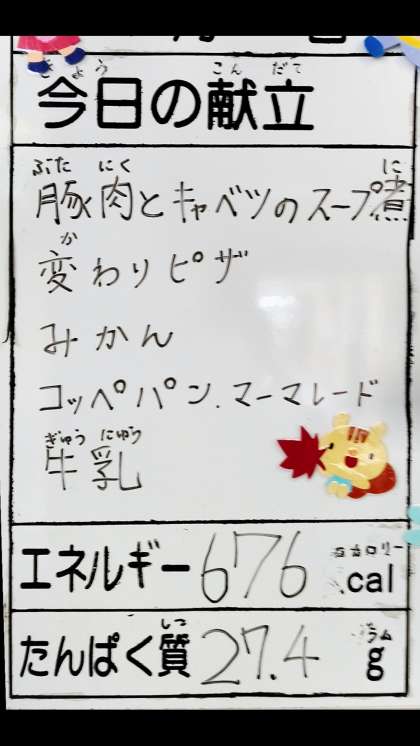 きょう こんだて
今日の献立
ぶた にく に
豚肉とキャベツのスープ煮
か
変わりピザ
みかん
コッペパン.マーマレード
ぎゅう にゅう
牛乳
カロリー
エネルギー 676 cal
しつ ラム
たんぱく質 27.4 g